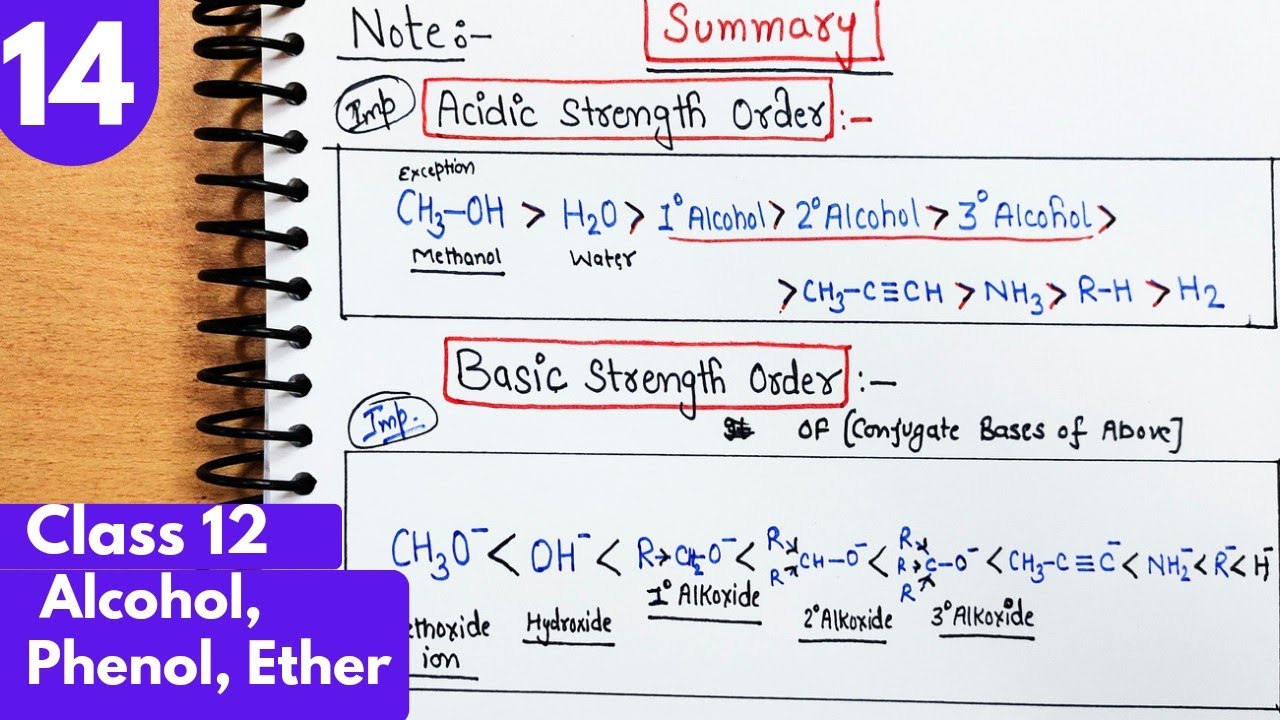 14
Note:-
Summary
Imp
Acidic Strength Order:-
Exception
CH3-OH > H2O > 1° Alcohol > 2° Alcohol > 3° Alcohol >
Methanol Water
> CH3-C≡CH > NH3 > R-H > H2
Basic Strength Order:-
Imp.
OF [Conjugate Bases of Above]
CH3O⁻ < OH⁻ < R→CH2O⁻ < R R CH-O⁻ < R R→C-O⁻ R < CH3-C≡C⁻ < NH2⁻ < R⁻ < H⁻
ethoxide ion Hydroxide 1° Alkoxide 2° Alkoxide 3° Alkoxide
Class 12
Alcohol,
Phenol, Ether